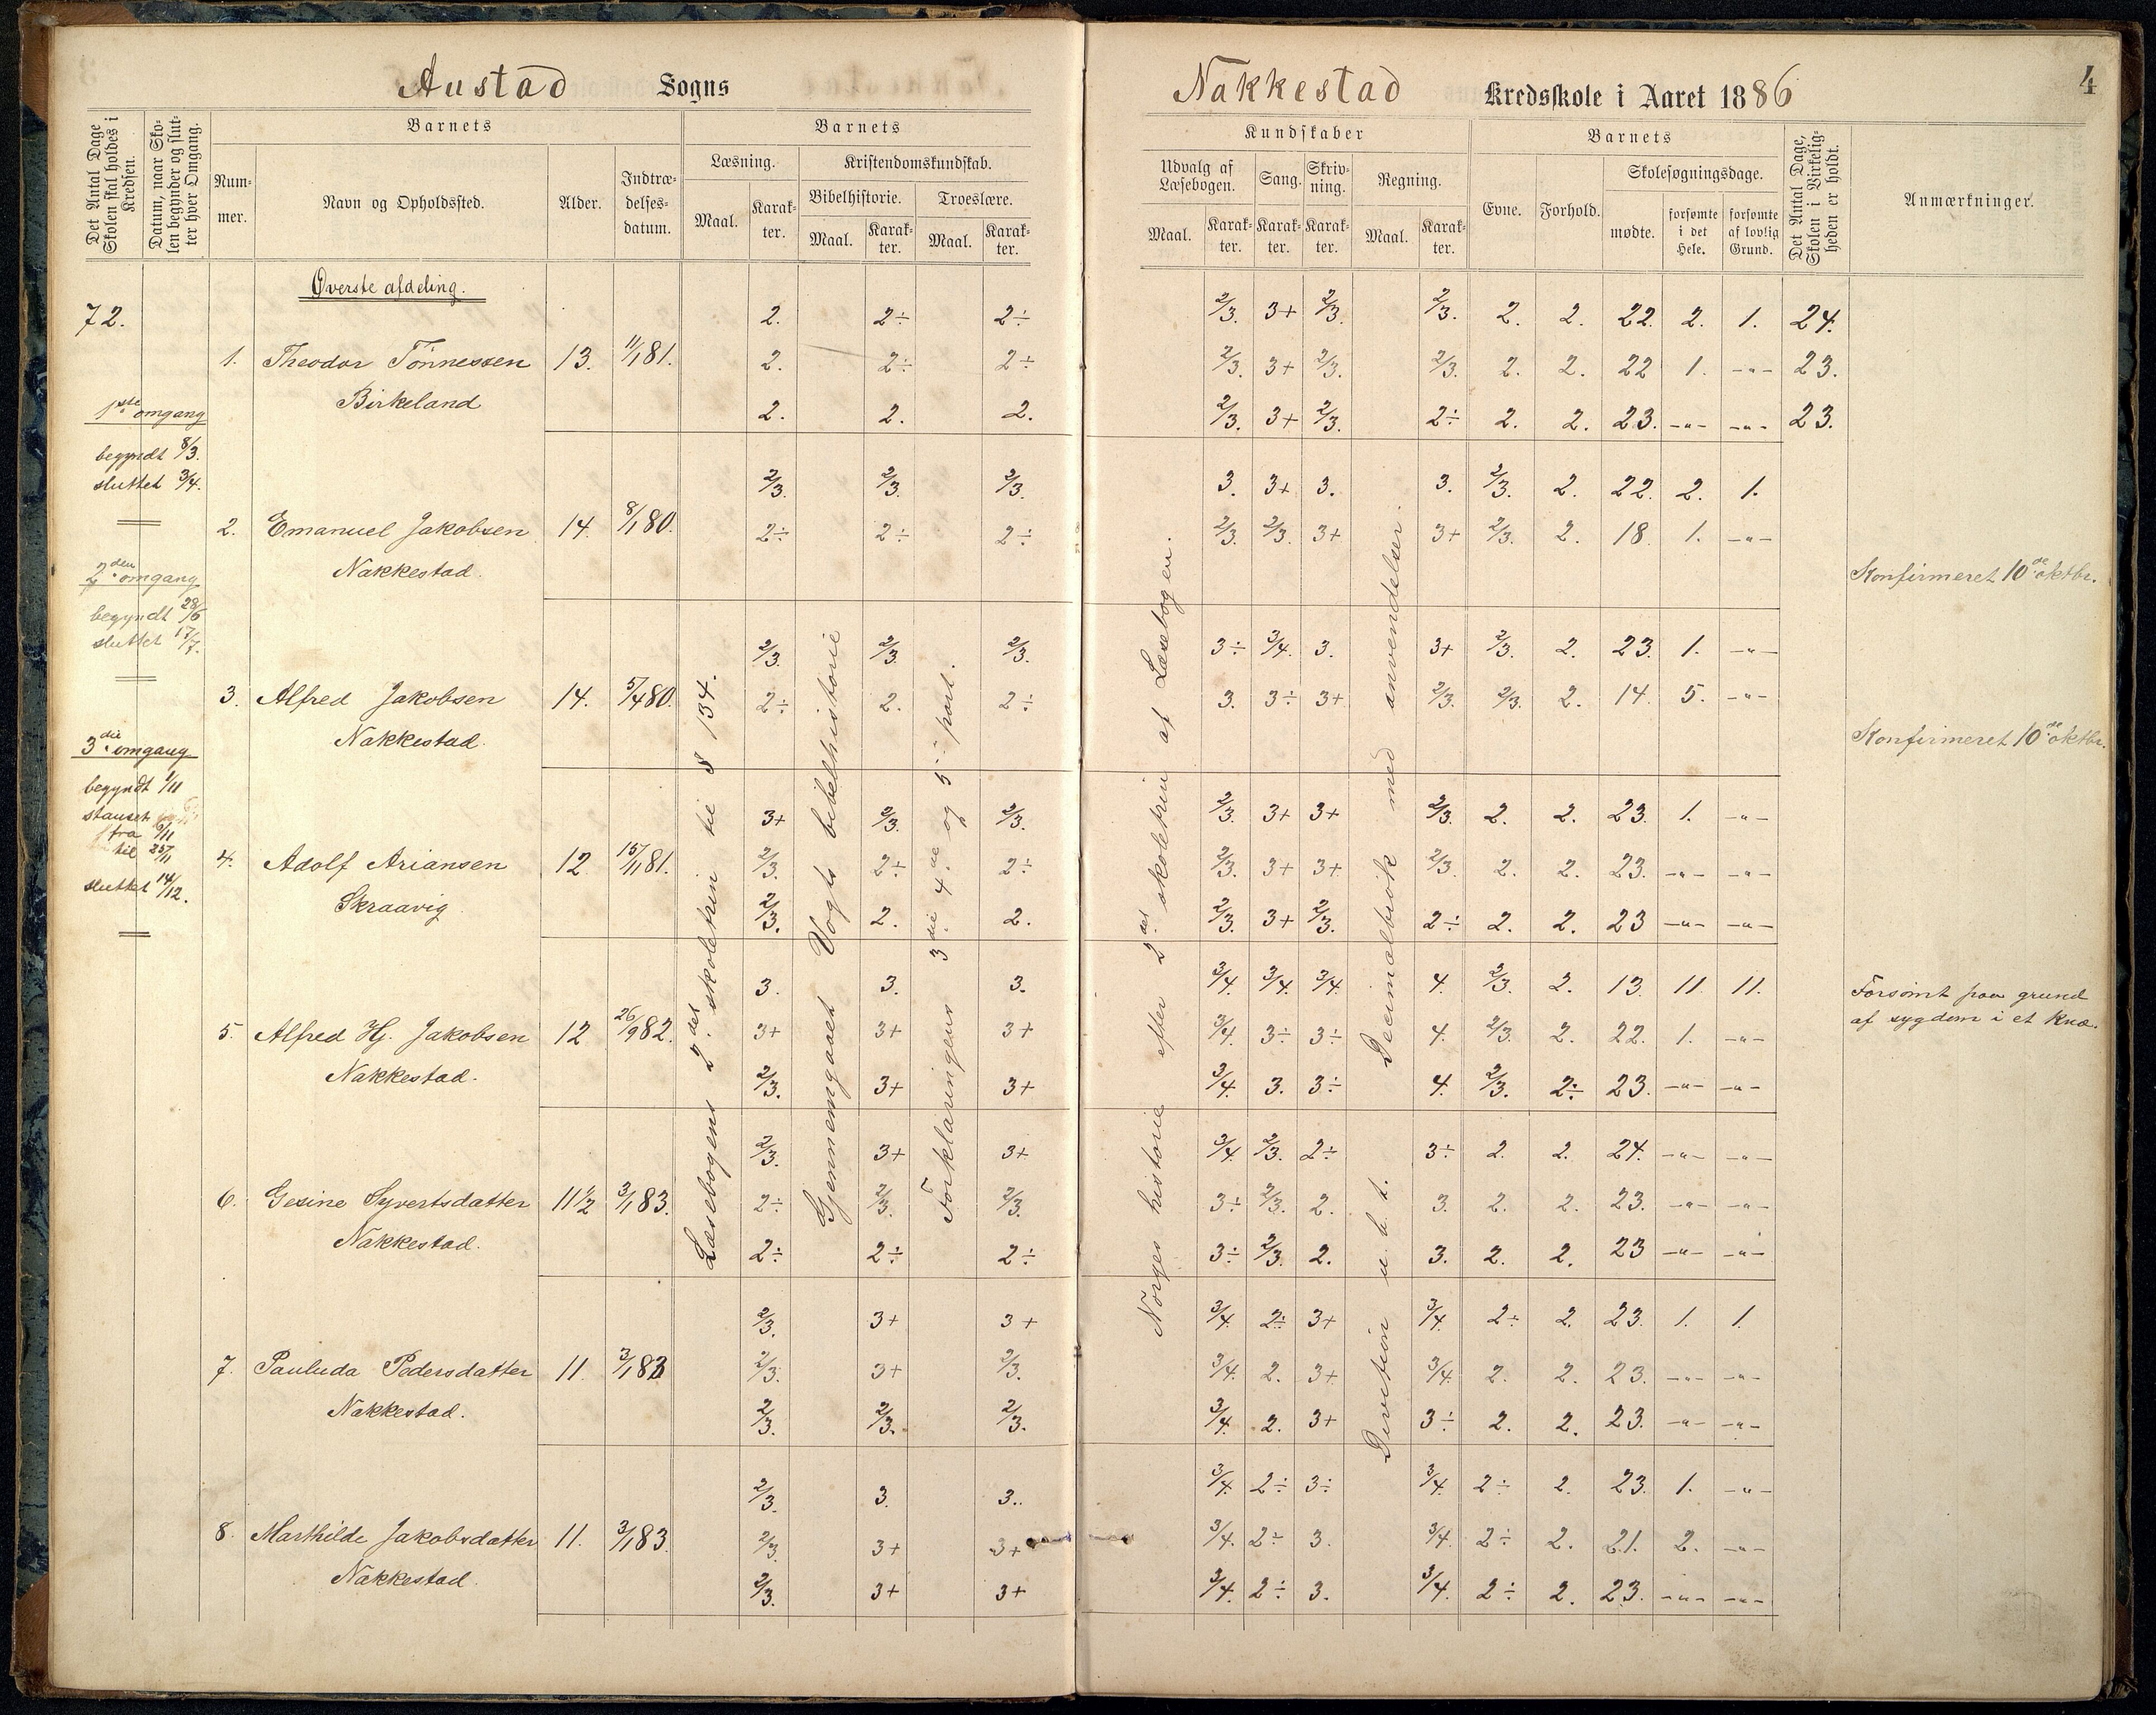 Austad Sogns
Nakkestad Kredsskole i Aaret 1886
4
Det Antal Dage Skolen skal holdes i Kredsen.
Datum, naar Skolen begynder og slutter hver Omgang.
Barnets
Nummer.
Navn og Opholdssted.
Alder.
Indtrædelsesdatum.
Barnets
Læsning.
Maal.
Karakter.
Kristendomskundskab.
Bibelhistorie.
Maal.
Karakter.
Troeslære.
Maal.
Karakter.
Kundskaber
Udvalg af Læsebogen.
Maal.
Karakter.
Sang.
Karakter.
Skrivning.
Karakter.
Regning.
Maal.
Karakter.
Barnets
Evne.
Forhold.
Skolesøgningsdage.
mødte.
forsømte i det Hele.
forsømte af lovlig Grund.
Det Antal Dage, Skolen i Virkeligheden er holdt.
Anmærkninger.
72.
1ste omgang
begyndt 8/3.
sluttet 3/4.
2den omgang
begyndt 28/6
sluttet 17/7.
3die omgang
begyndt 1/11
stanset
fra 6/11
til 25/11
sluttet 14/12.
Øverste afdeling.
Læsebogens 2det skoletrin til § 134.
Gjennemgaaet Vogts bibelhistorie
Forklaringens 3die 4de og 5te part.
Norges historie efter 2det skoletrin af Læsebogen.
Divistion u. b. t. Decimalbrøk med anvendelser.
2. 2÷ 2÷ 2/3. 3+ 2/3. 2/3. 2. 2. 22. 2. 1. 24.
1. Theodor Tønnessen 13. 11/1 81. 2. 2÷ 2÷ 2/3. 3+ 2/3. 2/3. 2. 2. 22 1. -"- 23.
Birkeland 2. 2. 2. 2/3. 3+ 2/3. 2÷ 2. 2. 23. -"- -"- 23.
2/3. 2/3. 2/3. 3. 3+ 3. 3. 2/3. 2. 22. 2. 1.
2. Emanuel Jakobsen 14. 8/1 80. 2÷ 2÷ 2÷ 2/3. 2/3. 3+ 3+ 2/3. 2. 18. 1. -"-
Nakkestad. Konfirmeret 10de oktbr.
2/3. 2/3. 2/3. 3÷ 3/4. 3. 3+ 2/3. 2. 23. 1. -"-
3. Alfred Jakobsen 14. 5/4 80. 2÷ 2. 2÷ 3. 3÷ 3+ 2/3. 2/3. 2. 14. 5. -"-
Nakkestad. Konfirmeret 10de oktbr.
3+ 2/3. 2/3. 2/3. 3+ 3+ 2/3. 2. 2. 23. 1. -"-
4. Adolf Ariansen 12. 15/11 81. 2/3. 2÷ 2÷ 2/3. 3+ 3+ 2/3. 2. 2. 23. -"- -"-
Skraavig 2/3. 2. 2. 2/3. 3+ 2/3. 2÷ 2. 2. 23 -"- -"-
3. 3. 3. 3/4. 3/4. 3/4. 4. 2/3. 2. 13. 11. 11. Forsømt paa grund
5. Alfred Hj. Jakobsen 12. 26/9 82. 3+ 3+ 3+ 3/4. 3÷ 3÷ 4. 2/3. 2. 22. 1. -"- af sygdom i et Knæ.
Nakkestad. 2/3. 3+ 3+ 3/4. 3. 3÷ 4. 2/3. 2÷ 23. -"- -"-
2/3. 3+ 3+ 3/4. 2/3. 2÷ 3÷ 2. 2. 24. -"- -"-
6. Gesine Syvertsdatter 11½ 3/1 83. 2÷ 2/3. 2/3. 3÷ 2/3. 2. 3. 2. 2. 23. -"- -"-
Nakkestad. 2÷ 2÷ 2÷ 3÷ 2/3. 2. 3. 2. 2. 23 -"- -"-
2/3. 3+ 3+ 3/4. 2÷ 3+ 3/4. 2÷ 2. 23. 1. 1.
7. Pauluda Pedersdatter 11. 3/1 83 2/3. 3+ 2/3. 3/4. 2. 3+ 3/4. 2. 2. 23. -"- -"-
Nakkestad. 2/3. 2/3. 2/3. 3/4. 2. 3+ 3÷ 2. 2. 23. -"- -"-
2/3. 3. 3. 3/4. 2÷ 3÷ 3/4. 2÷ 2. 23. 1. -"-
8. Marthilde Jakobsdatter 11. 3/1 83. 2/3. 3+ 3+ 3/4. 2÷ 3. 3/4. 2÷ 2. 21. 2. -"-
Nakkestad 2/3. 3+ 3+ 3/4. 2÷ 3. 3/4. 2÷ 2. 23. -"- -"-